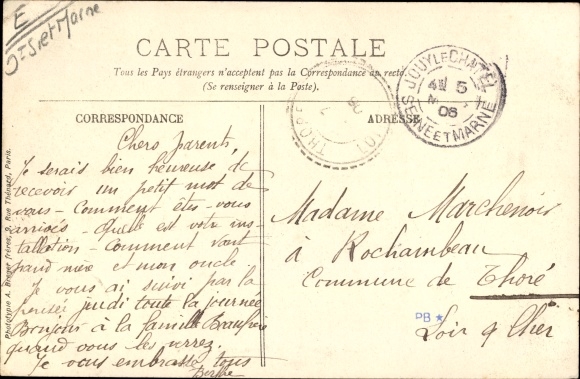 E
Sne et Marne
CARTE POSTALE
Tous les Pays étrangers n'acceptent pas la Correspondance au recto.
(Se renseigner à la Poste).
JOUY LE CHATEL
5
06
SEINE ET MARNE
THORÉ
CORRESPONDANCE
ADRESSE
Chers parents,
Je serais bien heureuse de
recevoir un petit mot de
vous - Comment êtes-vous
arrivés - Quelle est votre ins-
tallation - Comment vont
grand mère et mon oncle
Je vous ai suivi par la
pensée jeudi toute la journée
Bonjour à la famille
quand vous les verrez.
Je vous embrasse tous
Berthe
Madame Marchenoir
à Rochambeau
Commune de Thoré
Loir & Cher
PB
Phototypie A. Breger frères, 9, Rue Thénard, Paris.